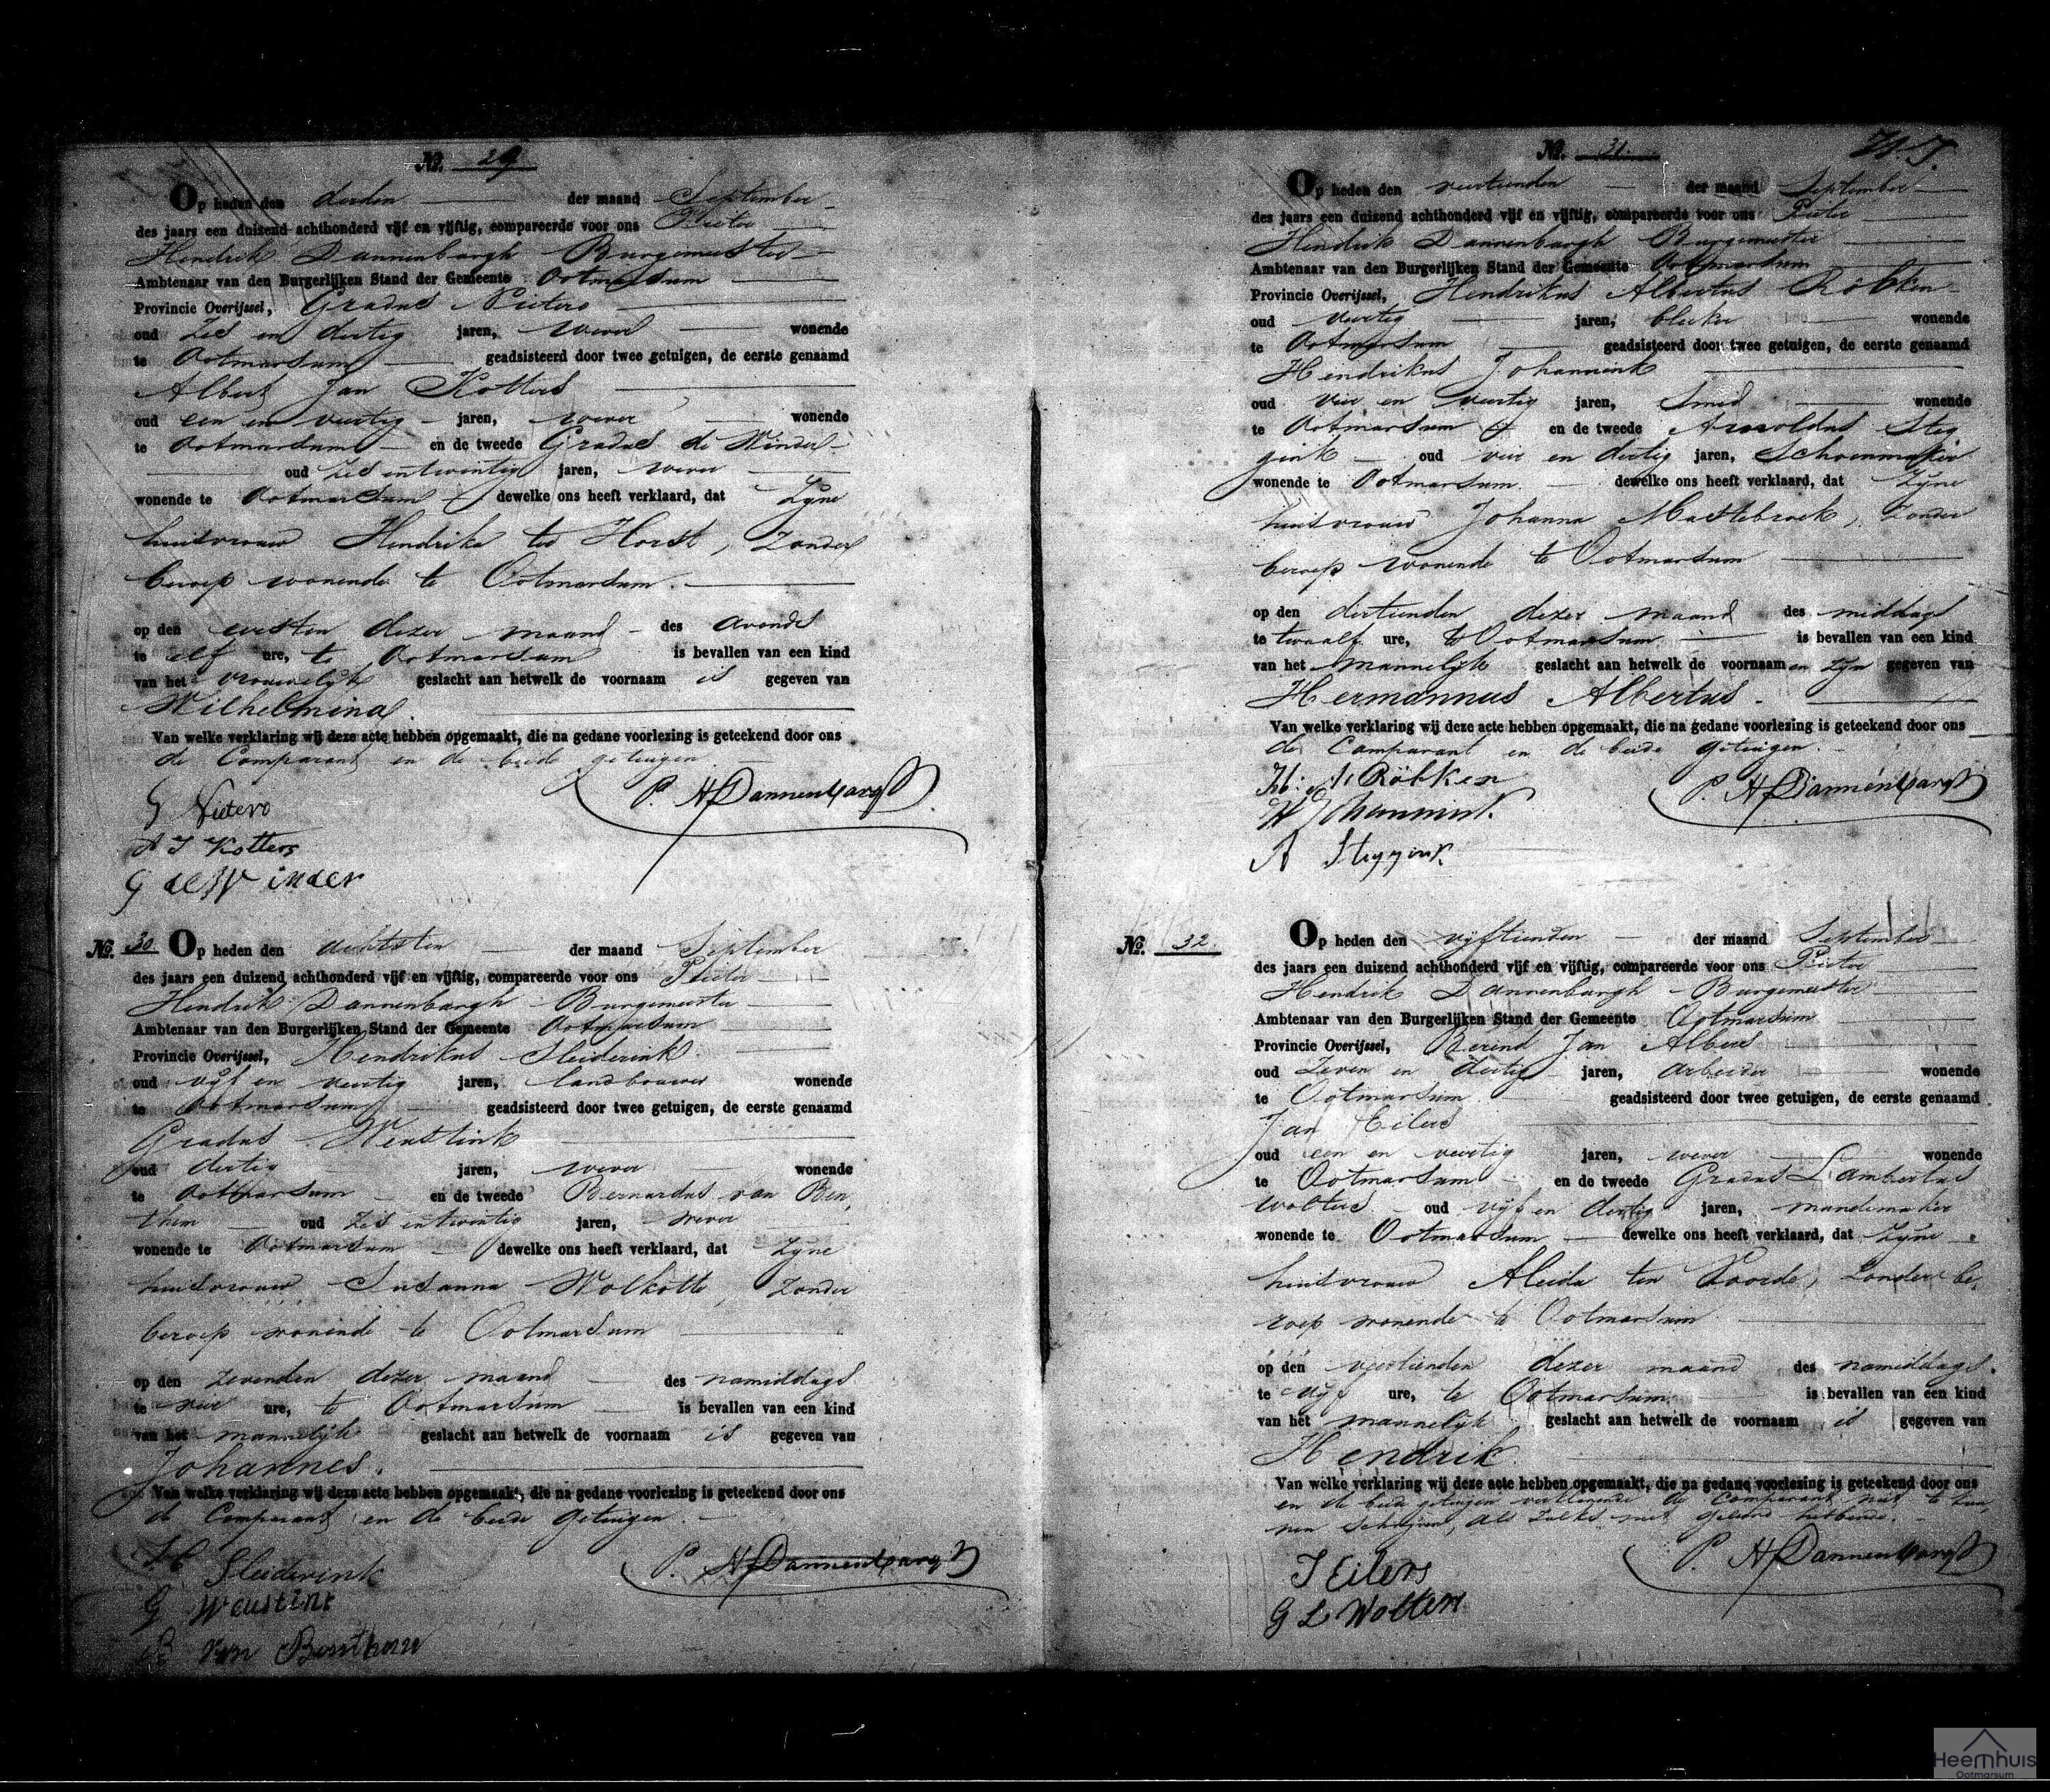 No. 29
Op heden den derden der maand September
des jaars een duizend achthonderd vijf en vijftig, compareerde voor ons Pieter
Hendrik Dannenbargh Burgemeester
Ambtenaar van den Burgerlijken Stand der Gemeente Ootmarsum
Provincie Overijssel, Gradus
oud Zes en dertig jaren, wever wonende
te Ootmarsum geadsisteerd door twee getuigen, de eerste genaamd
Albert Jan Kotters
oud een en veertig jaren, wever wonende
te Ootmarsum en de tweede Gradus de Winder
oud Zes en twintig jaren, wever
wonende te Ootmarsum dewelke ons heeft verklaard, dat Zijne
huisvrouw Hendrika ter Horst, Zonder
beroep wonende te Ootmarsum.
op den eersten dezer maand des avonds
te elf ure, te Ootmarsum is bevallen van een kind
van het vrouwelijk geslacht aan hetwelk de voornaam is gegeven van
Wilhelmina.
Van welke verklaring wij deze acte hebben opgemaakt, die na gedane voorlezing is geteekend door ons
de Comparant en de beide getuigen
P. H Dannenbargh
G
A J Kotters
G de Winder
No. 30. Op heden den achtsten der maand September
des jaars een duizend achthonderd vijf en vijftig, compareerde voor ons Pieter
Hendrik Dannenbargh Burgemeester
Ambtenaar van den Burgerlijken Stand der Gemeente Ootmarsum
Provincie Overijssel, Hendrikus Sleiderink
oud vijf en veertig jaren, landbouwer wonende
te Ootmarsum geadsisteerd door twee getuigen, de eerste genaamd
Gradus Weustink
oud dertig jaren, wever wonende
te Ootmarsum en de tweede Bernardus van Ben,
them oud Zes en twintig jaren, wever
wonende te Ootmarsum dewelke ons heeft verklaard, dat Zijne
huisvrouw Susanna Wolkotte, Zonder
beroep wonende te Ootmarsum
op den Zevenden dezer maand des namiddags
te vier ure, te Ootmarsum is bevallen van een kind
van het mannelijk geslacht aan hetwelk de voornaam is gegeven van
Johannes.
Van welke verklaring wij deze acte hebben opgemaakt, die na gedane voorlezing is geteekend door ons
de Comparant en de beide getuigen.
P. H Dannenbargh
Sleiderink
G Weustink
B van Benthem
No. 31.
Op heden den veertienden der maand September
des jaars een duizend achthonderd vijf en vijftig, compareerde voor ons Pieter
Hendrik Dannenbargh Burgemeester
Ambtenaar van den Burgerlijken Stand der Gemeente Ootmarsum
Provincie Overijssel, Hendrikus Albertus Röbken
oud veertig jaren, bleeker wonende
te Ootmarsum geadsisteerd door twee getuigen, de eerste genaamd
Hendrikus Johannink
oud vier en veertig jaren, Smid wonende
te Ootmarsum en de tweede Arnoldus Steg
gink oud vier en dertig jaren, Schoenmaker
wonende te Ootmarsum. dewelke ons heeft verklaard, dat Zijne
huisvrouw Johanna Mastebroek, Zonder
beroep wonende te Ootmarsum
op den dertienden dezer maand des middags
te twaalf ure, te Ootmarsum is bevallen van een kind
van het mannelijk geslacht aan hetwelk de voornaamen Zijn gegeven van
Hermannus Albertus.
Van welke verklaring wij deze acte hebben opgemaakt, die na gedane voorlezing is geteekend door ons
de Comparant en de beide getuigen.
P. H Dannenbargh
Röbken
H Johannink.
A Steggink
No. 32. Op heden den vijftienden der maand September
des jaars een duizend achthonderd vijf en vijftig, compareerde voor ons Pieter
Hendrik Dannenbargh Burgemeester
Ambtenaar van den Burgerlijken Stand der Gemeente Ootmarsum
Provincie Overijssel, Berend Jan Albers
oud Zeven en dertig jaren, arbeider wonende
te Ootmarsum geadsisteerd door twee getuigen, de eerste genaamd
Jan Eilers
oud een en veertig jaren, wever wonende
te Ootmarsum en de tweede Gradus Lambertus
Wolters oud vijf en dertig jaren, mandemaker
wonende te Ootmarsum dewelke ons heeft verklaard, dat Zijne
huisvrouw Aleida ten Voorde, Zonder be,
roep wonende te Ootmarsum
op den veertienden dezer maand des namiddags
te vijf ure, te Ootmarsum is bevallen van een kind
van het mannelijk geslacht aan hetwelk de voornaam is gegeven van
Hendrik.
Van welke verklaring wij deze acte hebben opgemaakt, die na gedane voorlezing is geteekend door ons
en de beide getuigen verklarende de Comparant niet te kun,
nen Schrijven, als Zulks niet geleerd hebbende.
P. H Dannenbargh
J Eilers
G L Wolters
Heemhuis
Ootmarsum